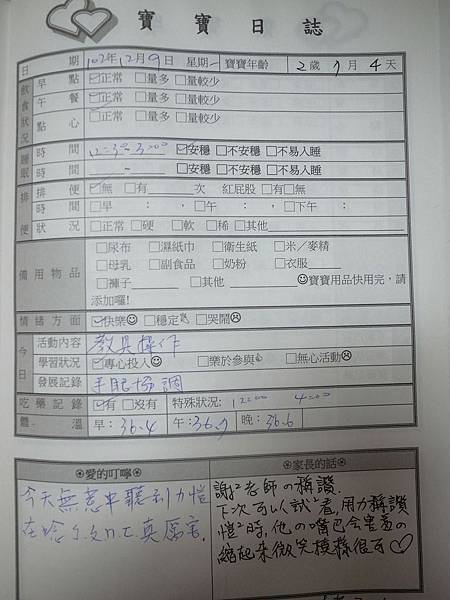 寶寶日誌
日期 102年12月9日 星期一 寶寶年齡 2歲7月4天
飲食狀況 早點 ☑正常 □量多 □量較少
午餐 ☑正常 □量多 □量較少
點心 □正常 □量多 □量較少
睡眠 時間 12:30 3:00 ☑安穩 □不安穩 □不易入睡
時間 - □安穩 □不安穩 □不易入睡
排便 排便 ☑無 □有 次 紅屁股 □有□無
時間 □早 : , □午 : , □下午 :
狀況 □正常 □硬 □軟 □稀 □其他
備用物品 □尿布 □濕紙巾 □衛生紙 □米／麥精
□母乳 □副食品 □奶粉 □衣服
□褲子 □其他 ☺寶寶用品快用完,請
添加囉!
情緒方面 ☑快樂☺ □穩定 □哭鬧☹
今日 活動內容 教具操作
學習狀況 ☑專心投入☺ □樂於參與 □無心活動☹
發展記錄 手眼協調
吃藥記錄 ☑有 □沒有 特殊狀況: 12:00 4:00
體溫 早:36.4 午:36.9 晚:36.6
愛的叮嚀
今天無意中聽到力愷
在唸ㄅ.ㄆ.ㄇ.ㄈ.真厲害.
家長的話
謝謝老師の稱讚.
下次可以試著,用力稱讚
愷愷時,他の嘴巴会害羞の
縮起來微笑模樣很可♡